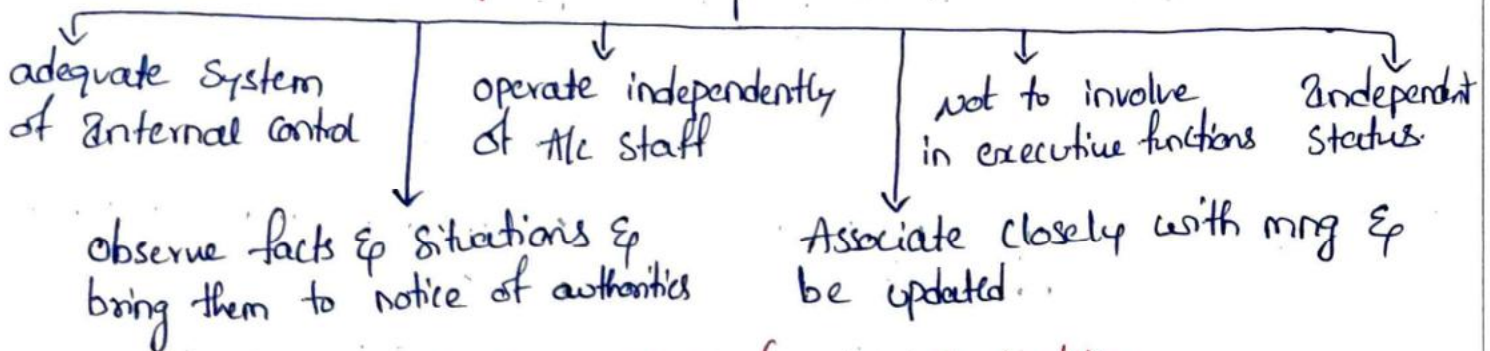 adequate System
of Internal Control
operate independently
of A/c Staff
Not to involve
in executive functions
Independent
Status.
Observe facts & Situations &
bring them to notice of authorities
Associate closely with mng &
be updated..